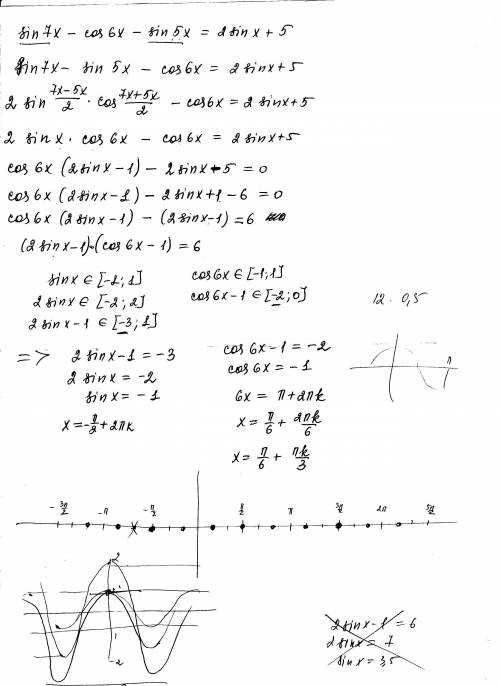 sin 7x − cos 6x − sin 5x = 2 sin x + 5
sin 7x − sin 5x − cos 6x = 2 sin x + 5
2 sin (7x−5x)/2 · cos (7x+5x)/2 − cos 6x = 2 sin x + 5
2 sin x · cos 6x − cos 6x = 2 sin x + 5
cos 6x (2 sin x − 1) − 2 sin x − 5 = 0
cos 6x (2 sin x − 1) − 2 sin x + 1 − 6 = 0
cos 6x (2 sin x − 1) − (2 sin x − 1) = 6
(2 sin x − 1)·(cos 6x − 1) = 6
sin x ∈ [−1; 1]
2 sin x ∈ [−2; 2]
2 sin x − 1 ∈ [−3; 1]
cos 6x ∈ [−1; 1]
cos 6x − 1 ∈ [−2; 0]
12. 0,5
=> 2 sin x − 1 = −3
2 sin x = −2
sin x = −1
x = −π/2 + 2πk
cos 6x − 1 = −2
cos 6x = −1
6x = π + 2πk
x = π/6 + 2πk/6
x = π/6 + πk/3
π
−3π/2 −π −π/2 π/2 π 3π/2 2π 5π/2
2
1
−2
2 sin x − 1 = 6
2 sin x = 7
sin x = 3,5